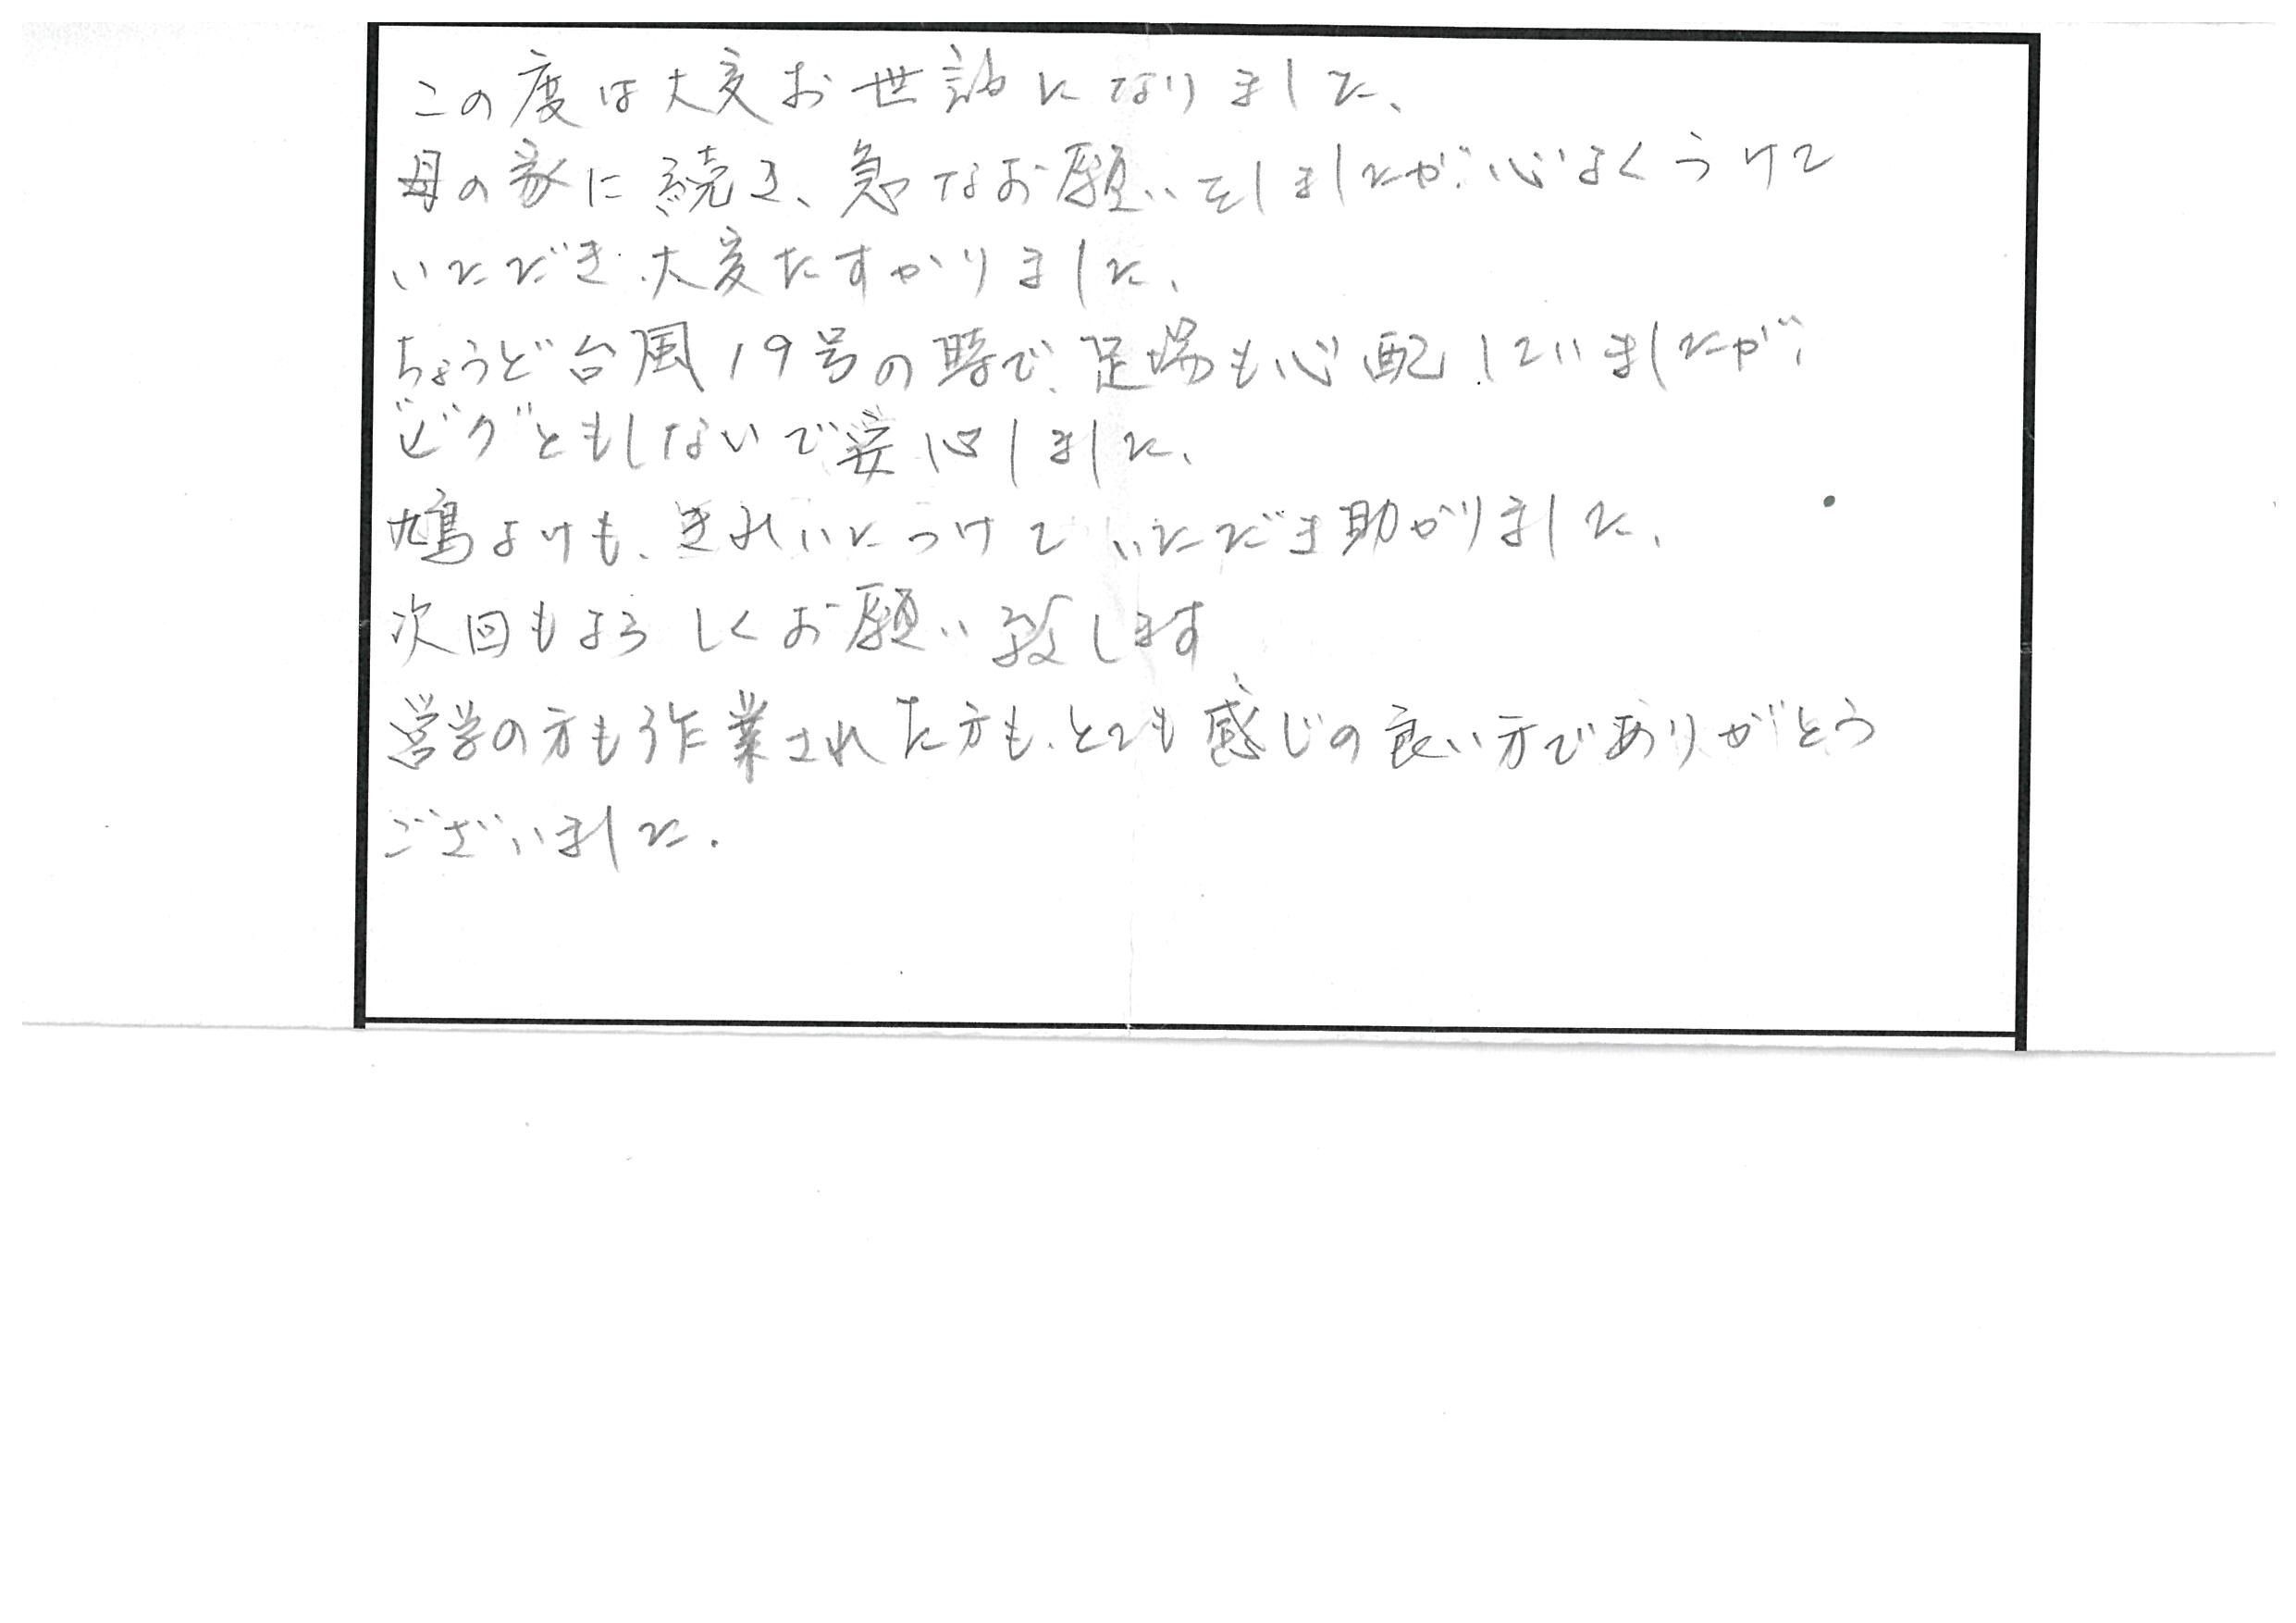 この度は大変お世話になりました、
母の家に続き、急なお願いをしましたが、心よくうけて
いただき、大変たすかりました、
ちょうど台風19号の時で、足場も心配していましたが、
ビクともしないで安心しました、
鳩よけも、きれいにつけていただき助かりました、
次回もよろしくお願い致します
営学の方も作業された方も、とても感じの良い方でありがとう
ございました.